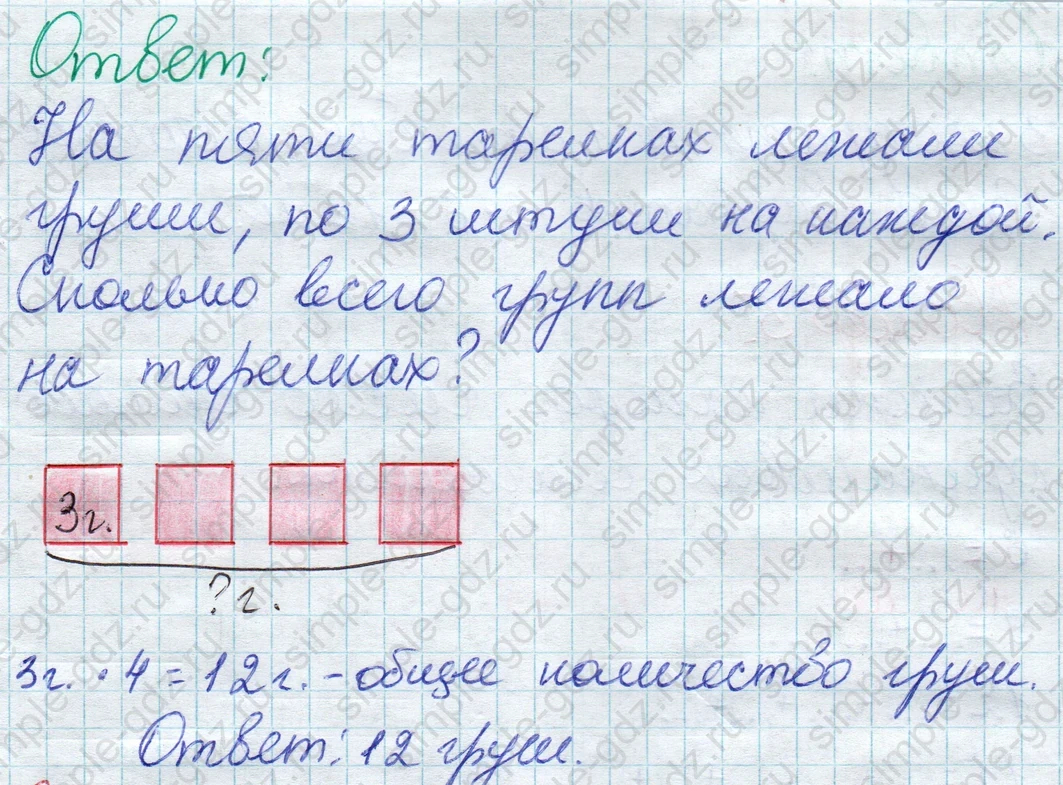 Ответ:
На пяти тарелках лежали
груши, по 3 штуки на каждой.
Сколько всего групп лежало
на тарелках?
3г.
?г.
3г. · 4 = 12г. - общее количество груш.
Ответ: 12 груш.
simple-gdz.ru